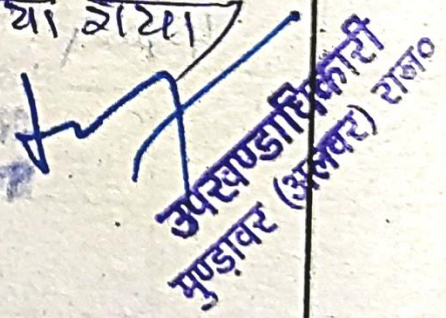 या गया
उपखण्डाधिकारी
मुण्डावर (अलवर) राज०